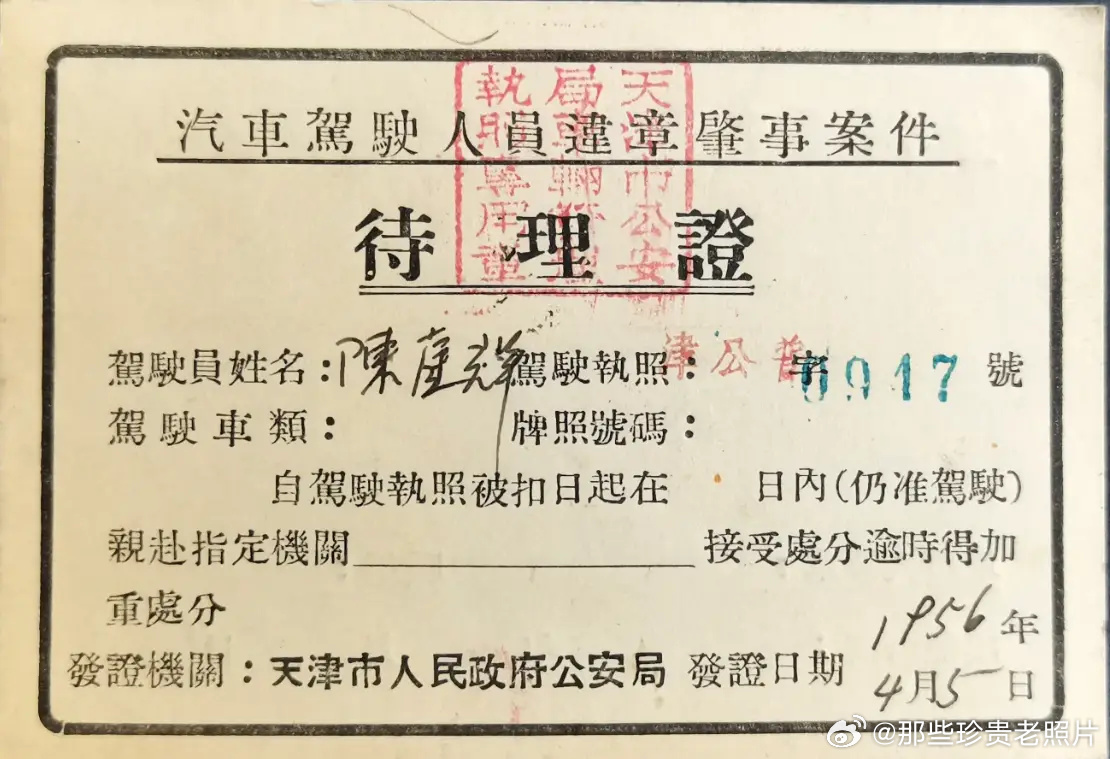 汽車駕駛人員違章肇事案件
待理證
天津市公安
局車輛管理
執照專用章
駕駛員姓名：陳 駕駛執照：津公普字0917號
駕駛車類： 牌照號碼：
自駕駛執照被扣日起在 日內(仍准駕駛)
親赴指定機關 接受處分逾時得加
重處分
1956年
發證機關：天津市人民政府公安局 發證日期 4月5日
@那些珍贵老照片